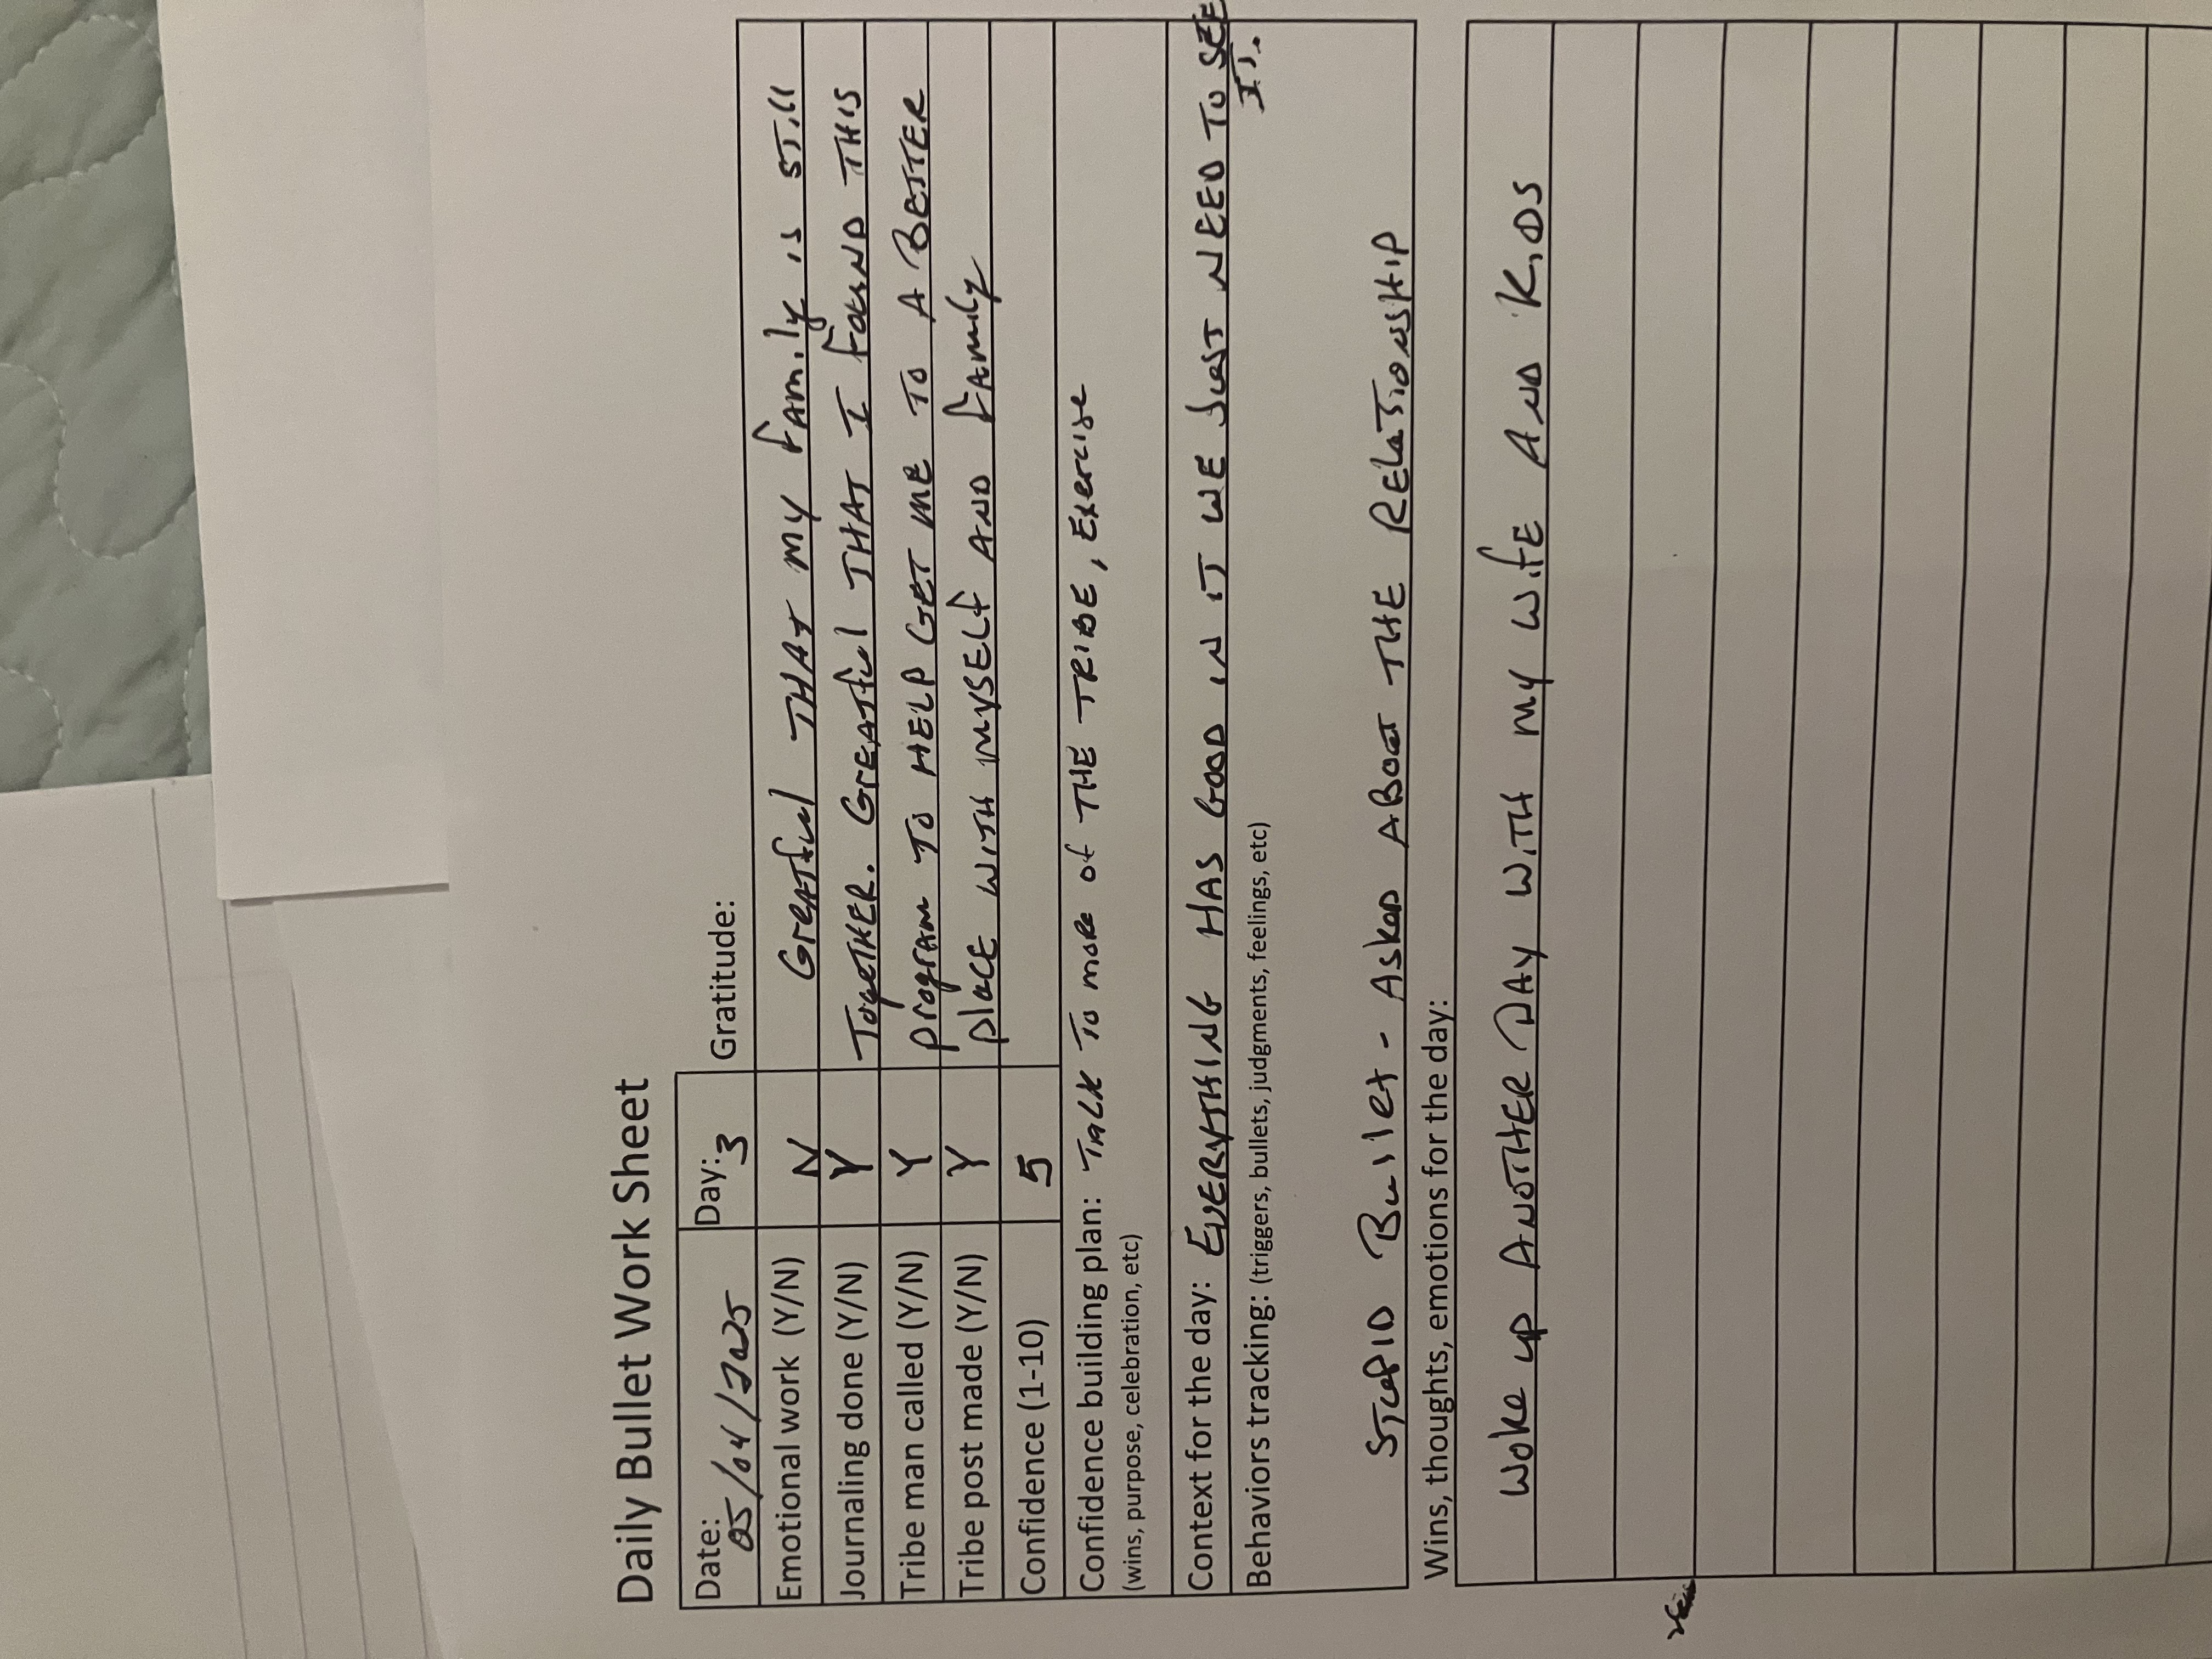 Daily Bullet Work Sheet
Date: 05/04/2025 Day: 3 Gratitude:
Emotional work (Y/N) N Greatful THAT my family is still
Journaling done (Y/N) Y TogeTHER. GreATful THAT I found THIS
Tribe man called (Y/N) Y program TO HELP GET ME TO A BETTER
Tribe post made (Y/N) Y place WITH mySELf AND family
Confidence (1-10) 5
Confidence building plan: TALK To more of THE TRIBE, Exercise
(wins, purpose, celebration, etc)
Context for the day: EVERYTHING HAS GOOD IN IT WE JUST NEED TO SEE
IT.
Behaviors tracking: (triggers, bullets, judgments, feelings, etc)
STUPID Bullet - Asked ABOUT THE RELATIONSHIP
Wins, thoughts, emotions for the day:
Woke up ANOTHER DAY WITH my wife AND KIDS